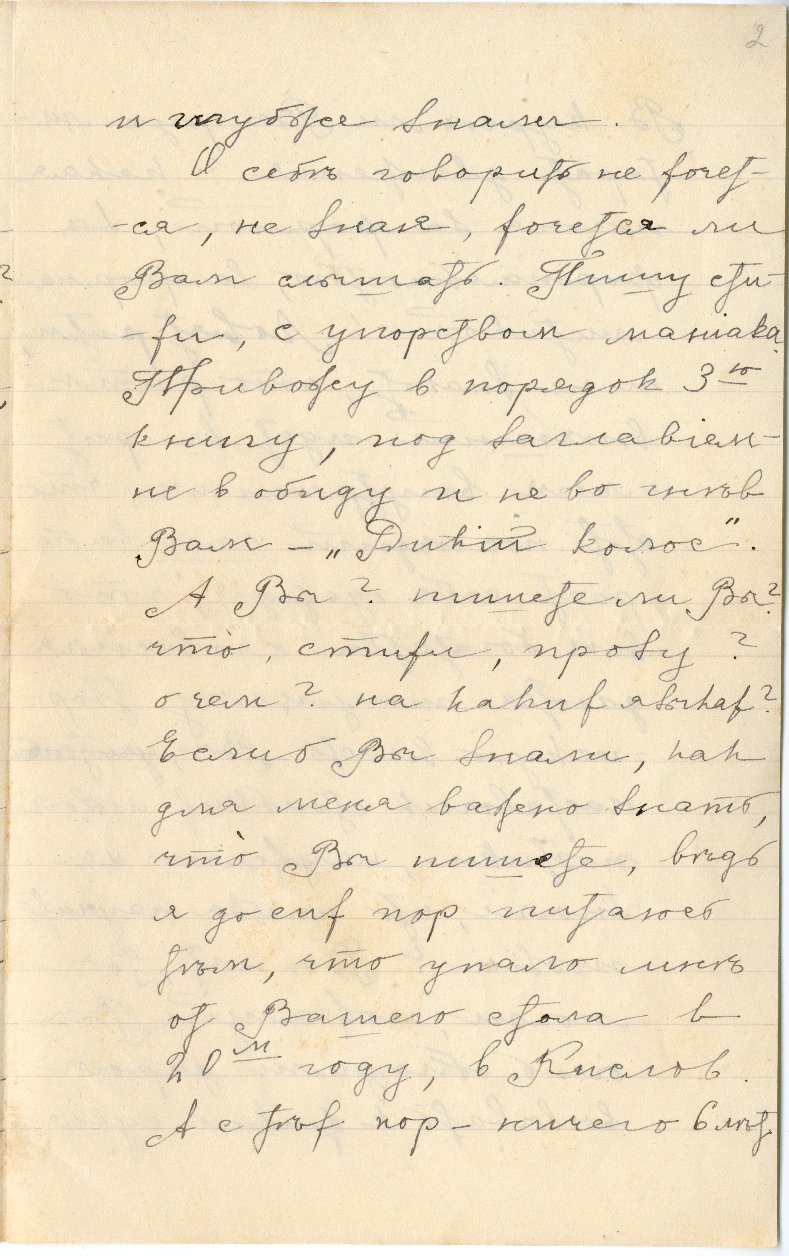 2
и глубже знали.
О себѣ говорить не хочет-
-ся, не зная, хочется ли
Вам слышать. Пишу сти-
-хи, с упорством маніака.
Привожу в порядок 3ю
книгу, под заглавіем-
не в обиду и не во гнѣв
Вам – „Дикій колос".
А Вы? пишете ли Вы?
что̀, стихи, прозу?
о чем? на каких языках?
Если б Вы знали, как
для меня важно знать,
что̀ Вы пишете, вѣдь
я до сих пор питаюсь
тѣм, что упало мнѣ
от Вашего стола в
20м году, в Кислов.
А с тѣх пор – ничего 6 лѣт